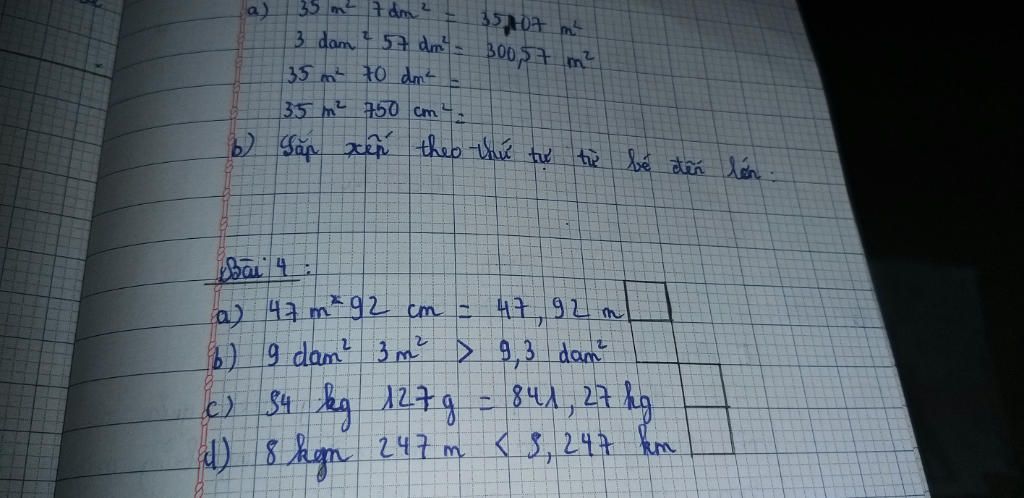 a) 35 m² 7 dm² = 35,07 m²
3 dam² 57 dm² = 300,57 m²
35 m² 70 dm² =
35 m² 750 cm² =
b) Sắp xếp theo thứ tự từ bé đến lớn :
Bài 4 :
a) 47 m 92 cm = 47,92 m
b) 9 dam² 3 m² > 9,3 dam²
c) 84 kg 127 g = 841,27 kg
d) 8 km 247 m < 8,247 km